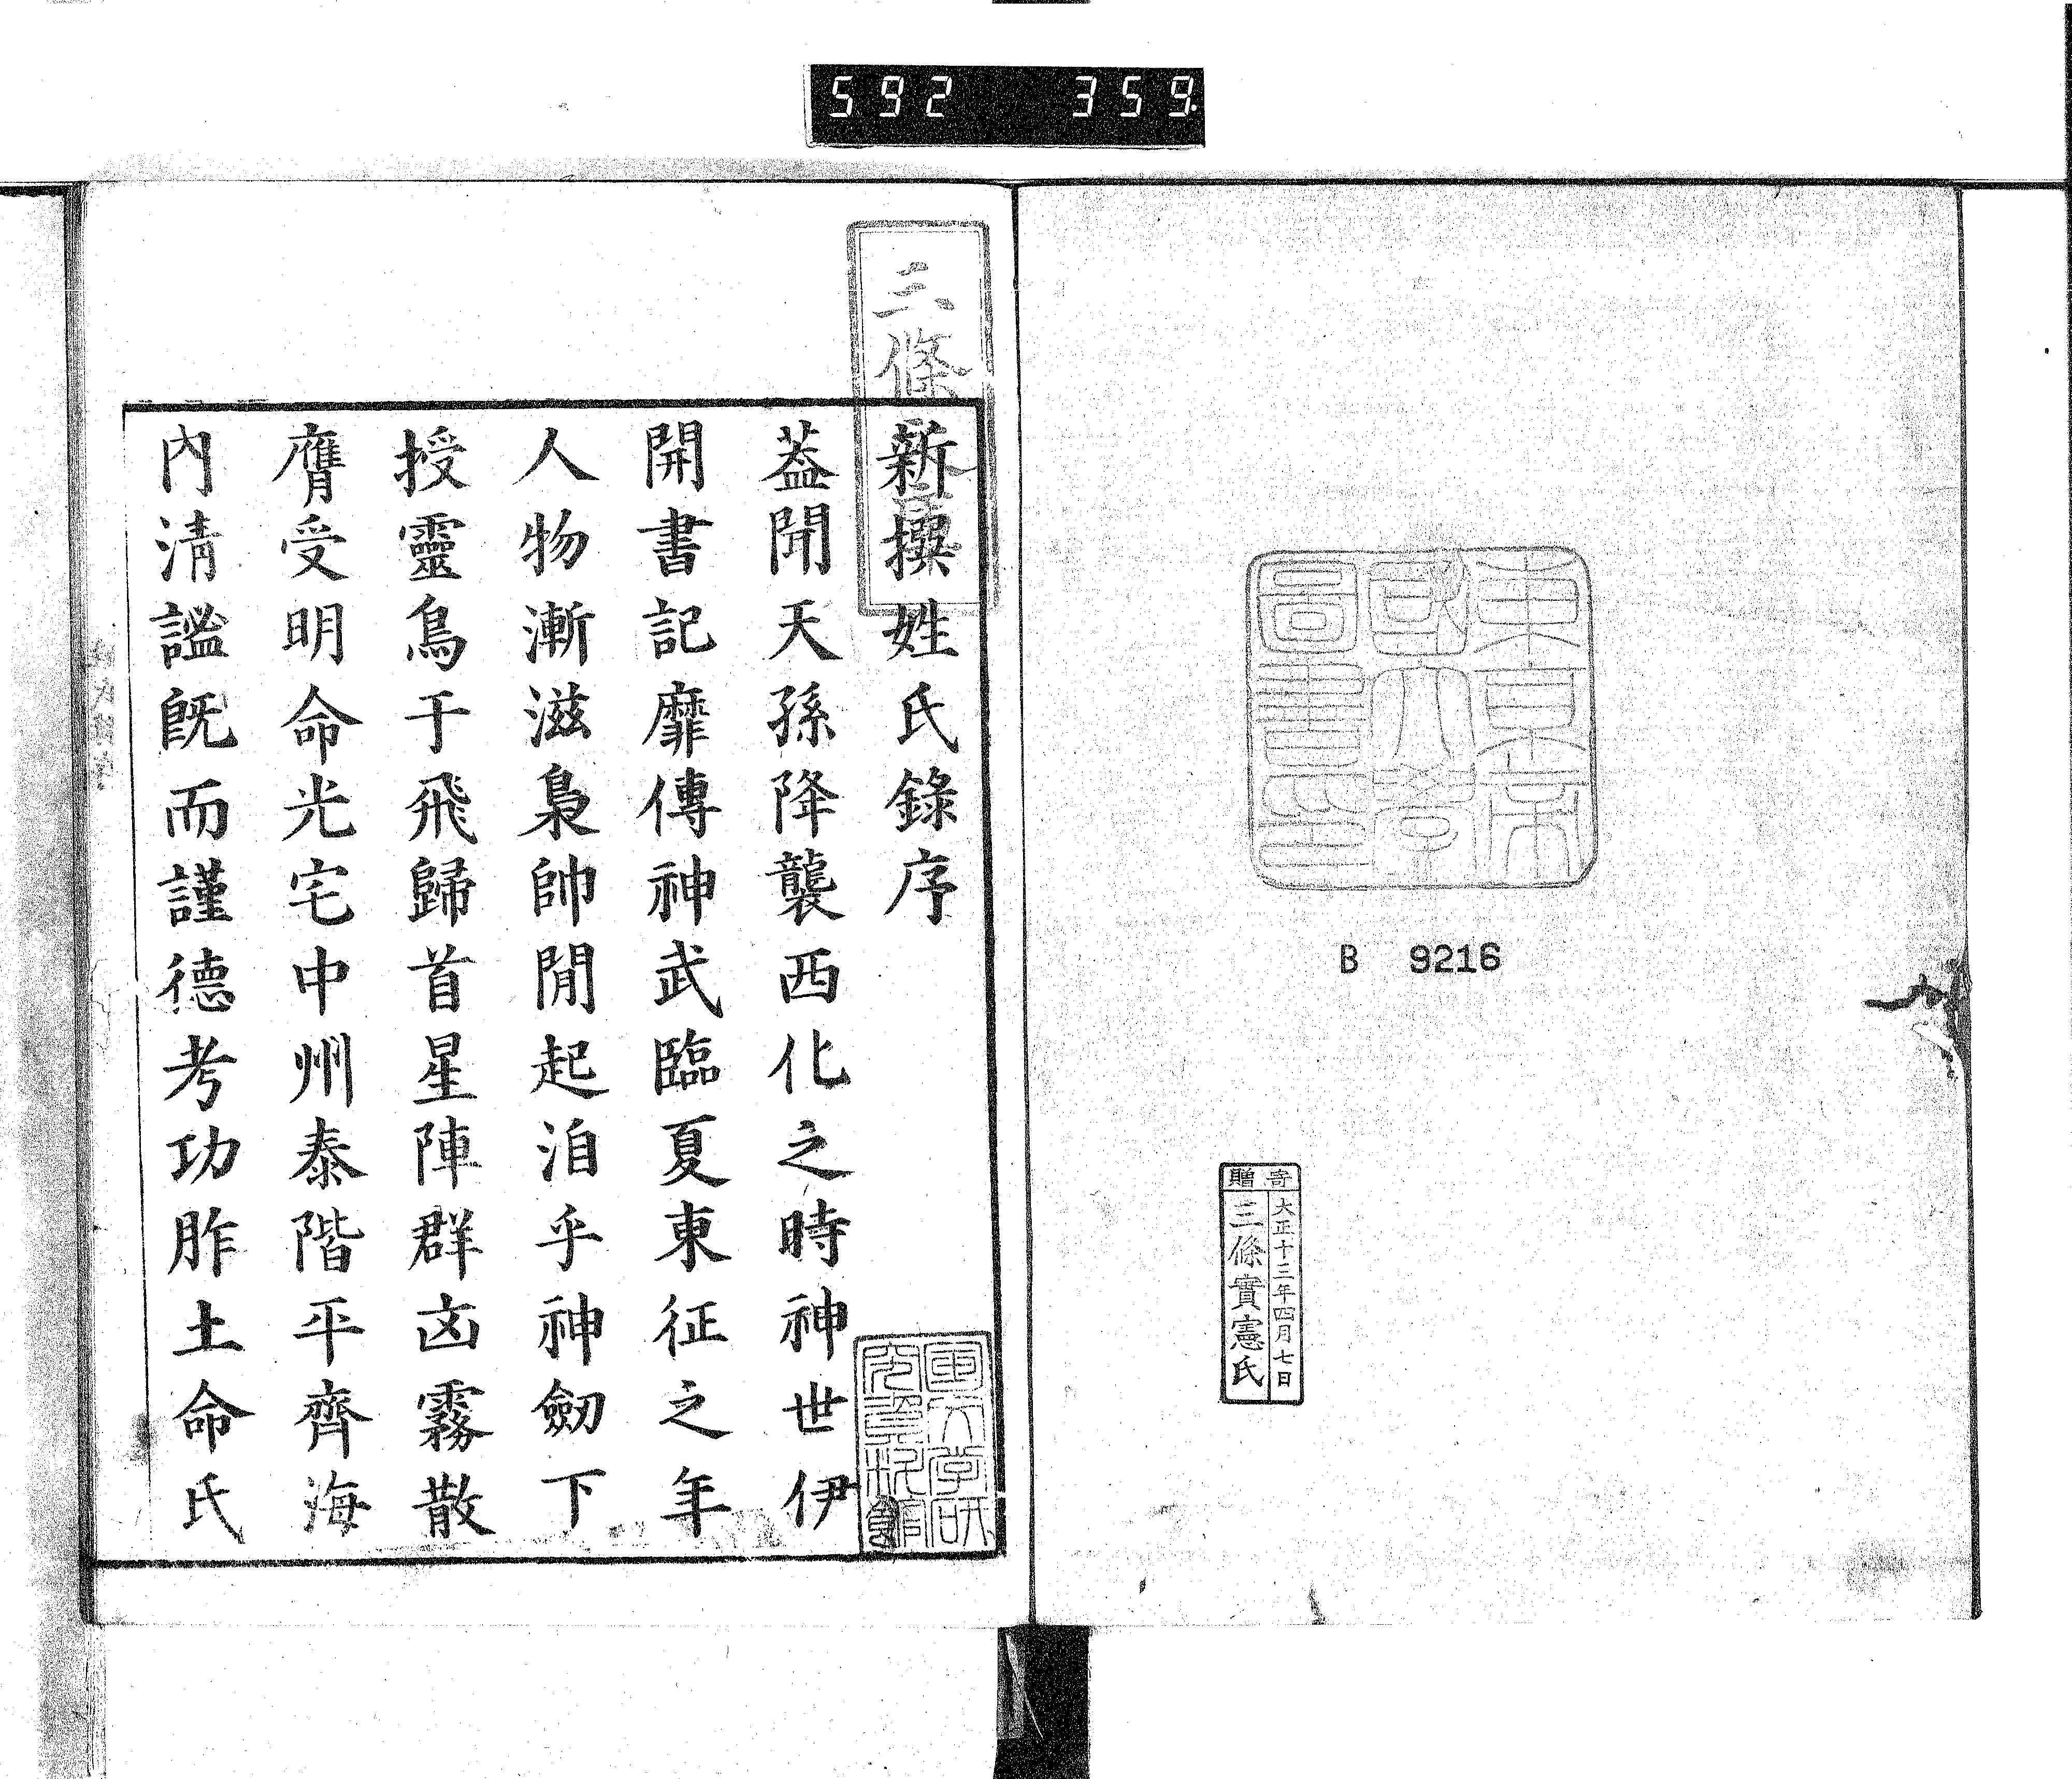 592 359.
東京帝
國大學
圖書印
B 9216
寄贈
大正十三年四月七日
三條實憲氏
三條
新撰姓氏錄序
葢聞天孫降襲西化之時神世伊
開書記靡傳神武臨夏東征之年
人物漸滋梟帥閒起洎乎神劔下
授靈鳥于飛歸首星陣群凶霧散
膺受明命光宅中州泰階平齊海
內清謐既而謹德考功胙土命氏